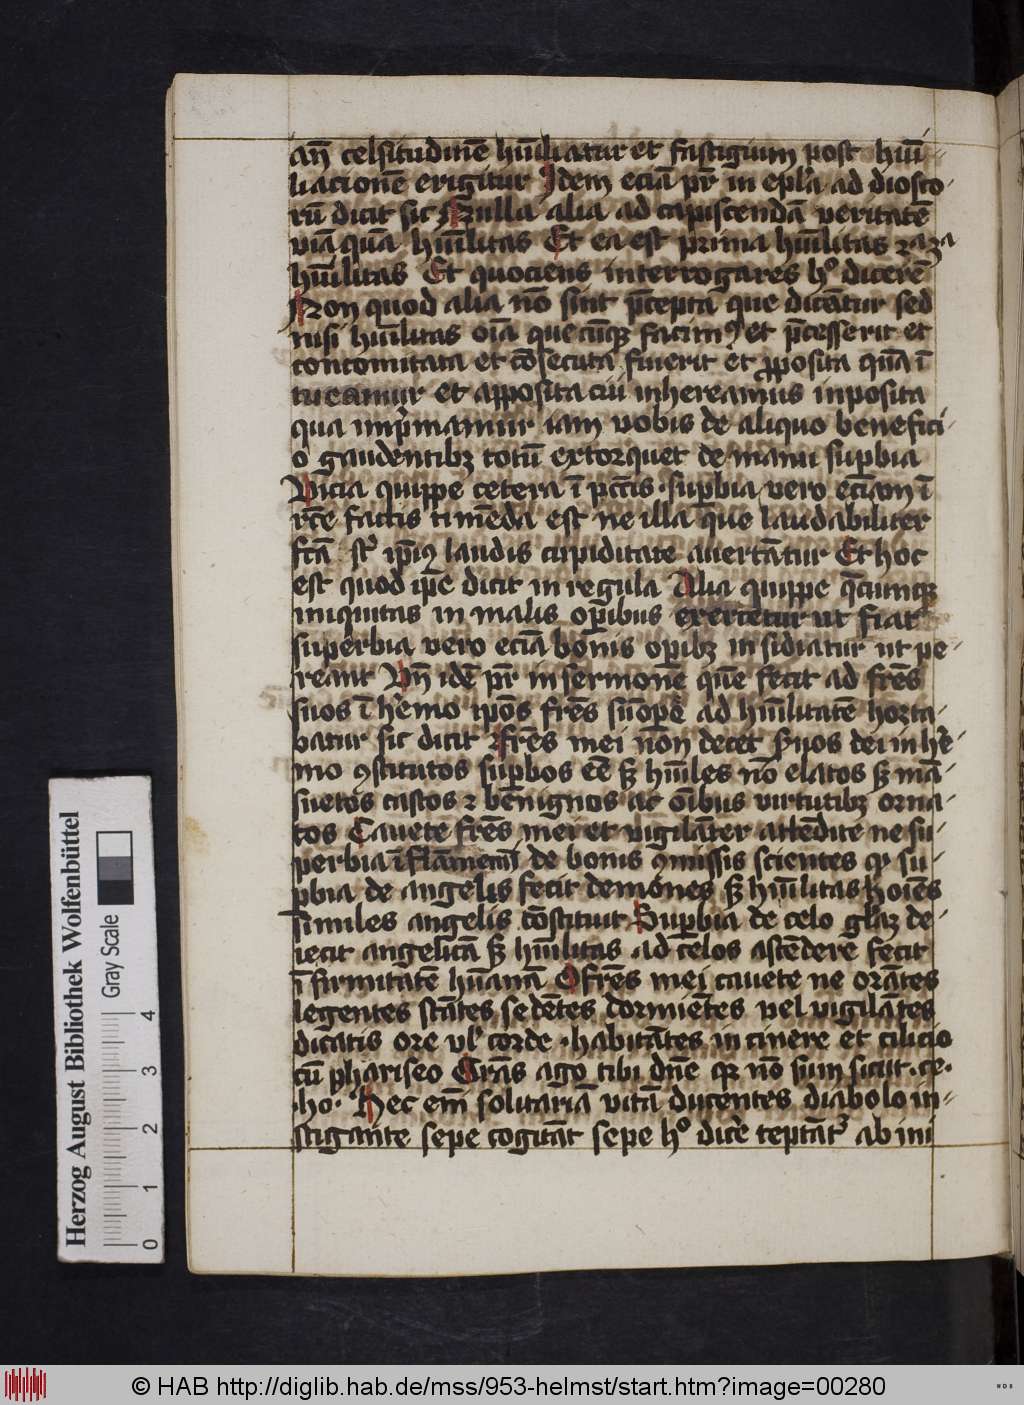 an̄ celsitudinē hūīliatur et fastigium post hūī⸗
liacionē erigitur Idem eciā pr̄ in epl̄a ad diosco⸗
rū dicit sic Nulla alia ad capiscendā veritatē
viā quā hūīlitas Et ea est prima hūīlitas
hūīlitas Et quociens interrogares hͦ dicerē
Non quod alia nō sint p̄cepta que dicātur sed
nisi hūīlitas oīa quecūqꝫ facimꝰ et p̄cesserit et
concomitata et cōsecuta fuerit et p̱posita quā ī
tueamur et apposita cui inhereamus inposita
qua imp̄mamur iam vobis de aliquo benefici⸗
o gaudentibꝫ totū extorquet de manu suꝑbia
Vicia quippe cetera ī pcc̄īs suꝑbia vero eciam ī
rc̄e factis timēda est ne illa que laudabiliter
fc̄ā st̄ ip̄iꝰ laudis cupiditate auertātur Et hoc
est quod ip̄e dicit in regula Alia quippe q̄cumqꝫ
iniquitas in malis oꝑibus exercetur ut fiat
superbia vero eciā bonis oꝑibꝫ insidiatur ut pe⸗
reant Vn̄ idē pr̄ in sermonē quē fecit ad fr̄es
suos ī h̓emo ip̄os fr̄es sūoꝑe ad hūīlitatē horta⸗
batur sic dicit fr̄es mei nōn decet seruos dei in h̓e⸗
mo ꝯstitutos suꝑbos eē sꝫ hūīles nō elatos sꝫ mā⸗
suetos castos ⁊ benignos ac oībus virtutibꝫ orna⸗
tos Cauete fr̄es mei et vigilāter attēdite ne su⸗
perbia īflāmem̄ de bonis ꝯmissis scientes qꝫ su⸗
ꝑbia de angelis fecit demones sꝫ hūīlitas hoīes
similes angelis cōstituit Suꝑbia de celo gl̄aꝫ de⸗
iecit angelicā sꝫ hūīlitas ad celos ascēdere fecit
īfirmitatē hūanā O fr̄es mei cauete ne orātes
legentes stātes sedētes dormiētes vel vigilātes
dicatis ore vl̓ corde habitātes in cinere et cilicio
cū phariseo Grās ago tibi dn̄e qꝛ nō sum sicut ce⸗
ho· Hec em̄ solitariā vitā ducentes diabolo in⸗
stigante sepe cogitāt sepe hͦ dicē teptāt̓ ab ini
Herzog August Bibliothek Wolfenbüttel
Gray Scale
0 1 2 3 4
© HAB http://diglib.hab.de/mss/953-helmst/start.htm?image=00280